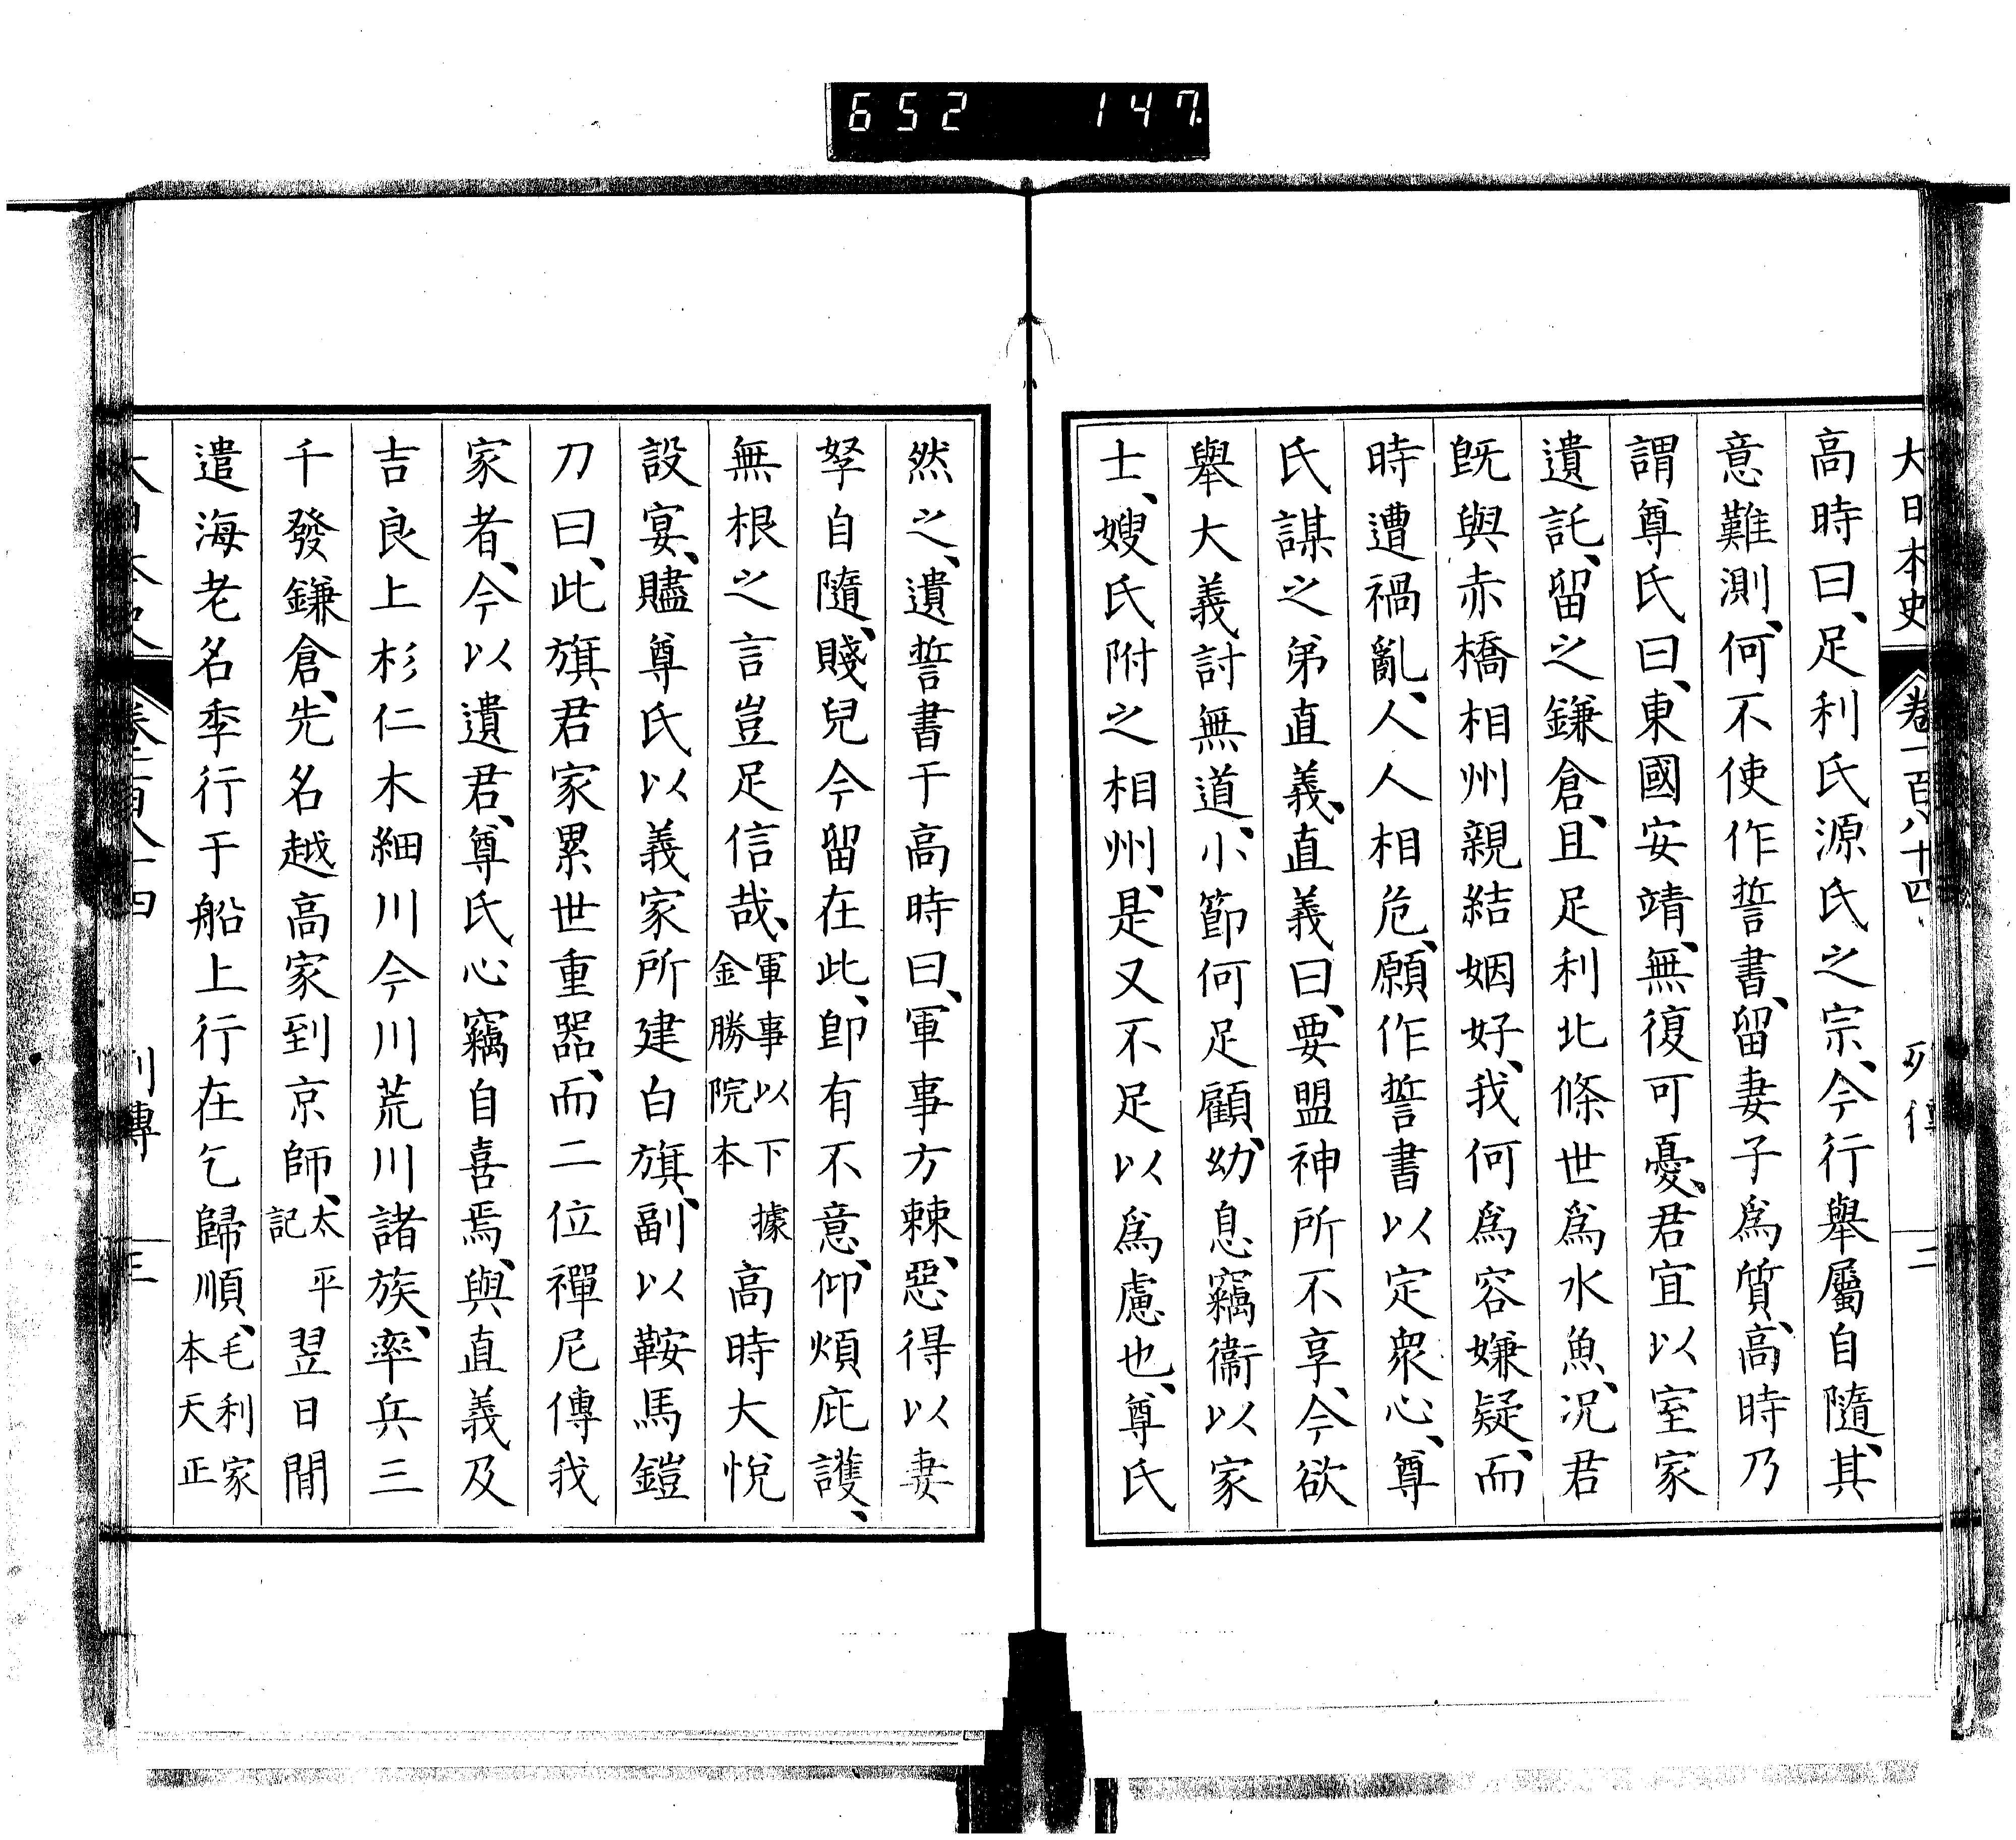 652 147.
大日本史 卷一百八十四 列傳 二
高時曰、足利氏源氏之宗、今行舉屬自隨、其
意難測、何不使作誓書、留妻子爲質、高時乃
謂尊氏曰、東國安靖、無復可憂、君宜以室家
遺託、留之鎌倉、且足利北條世爲水魚、況君
既與赤橋相州親結姻好、我何爲容嫌疑、而
時遭禍亂、人人相危、願作誓書以定衆心、尊
氏謀之弟直義、直義曰、要盟神所不享、今欲
舉大義討無道、小節何足顧、幼息竊衞以家
士、嫂氏附之相州、是又不足以爲慮也、尊氏
然之、遺誓書于高時曰、軍事方棘、惡得以妻
孥自隨、賤兒今留在此、卽有不意、仰煩庇護、
無根之言豈足信哉、軍事以下據金勝院本高時大悅
設宴、贐尊氏以義家所建白旗、副以鞍馬鎧
刀曰、此旗君家累世重器、而二位禪尼傳我
家者、今以遺君、尊氏心竊自喜焉、與直義及
吉良上杉仁木細川今川荒川諸族、率兵三
千發鎌倉、先名越高家到京師、太平記翌日間
遣海老名季行于船上行在乞歸順、毛利家本天正
大日本史 卷一百八十四 列傳 三